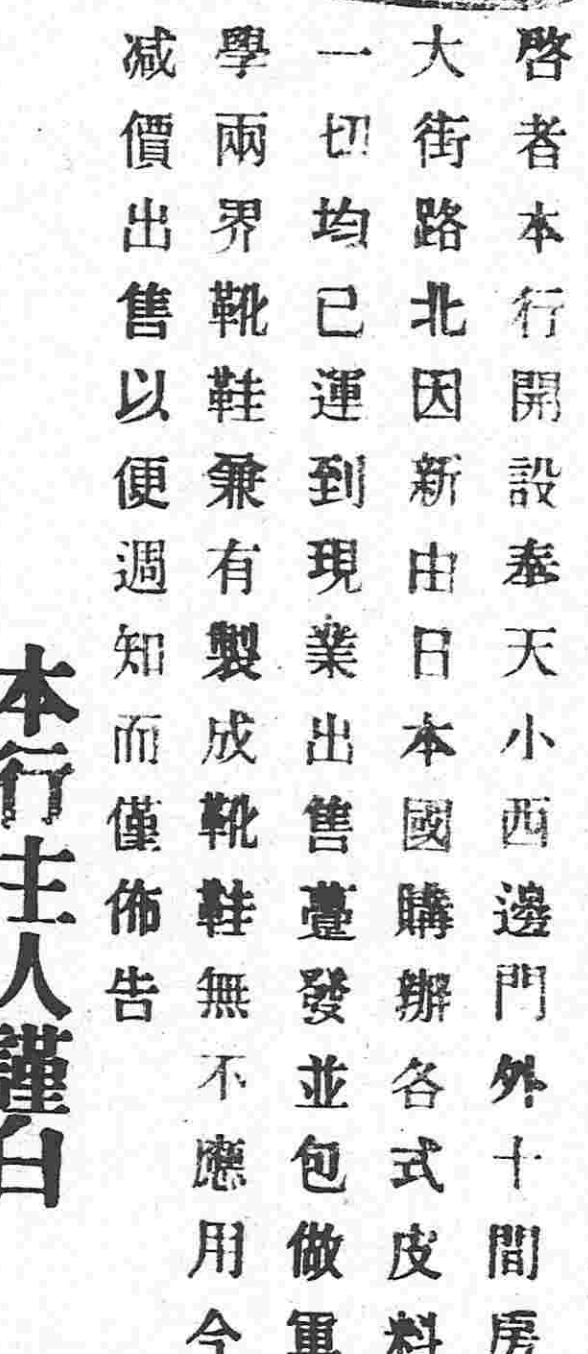 啓者本行開設奉天小西邊門外十間房
大街路北因新由日本國購辦各式皮料
一切均已運到現業出售躉發並包做軍
學兩界靴鞋兼有製成靴鞋無不應用今
减價出售以便週知而僅佈告
本行主人謹白